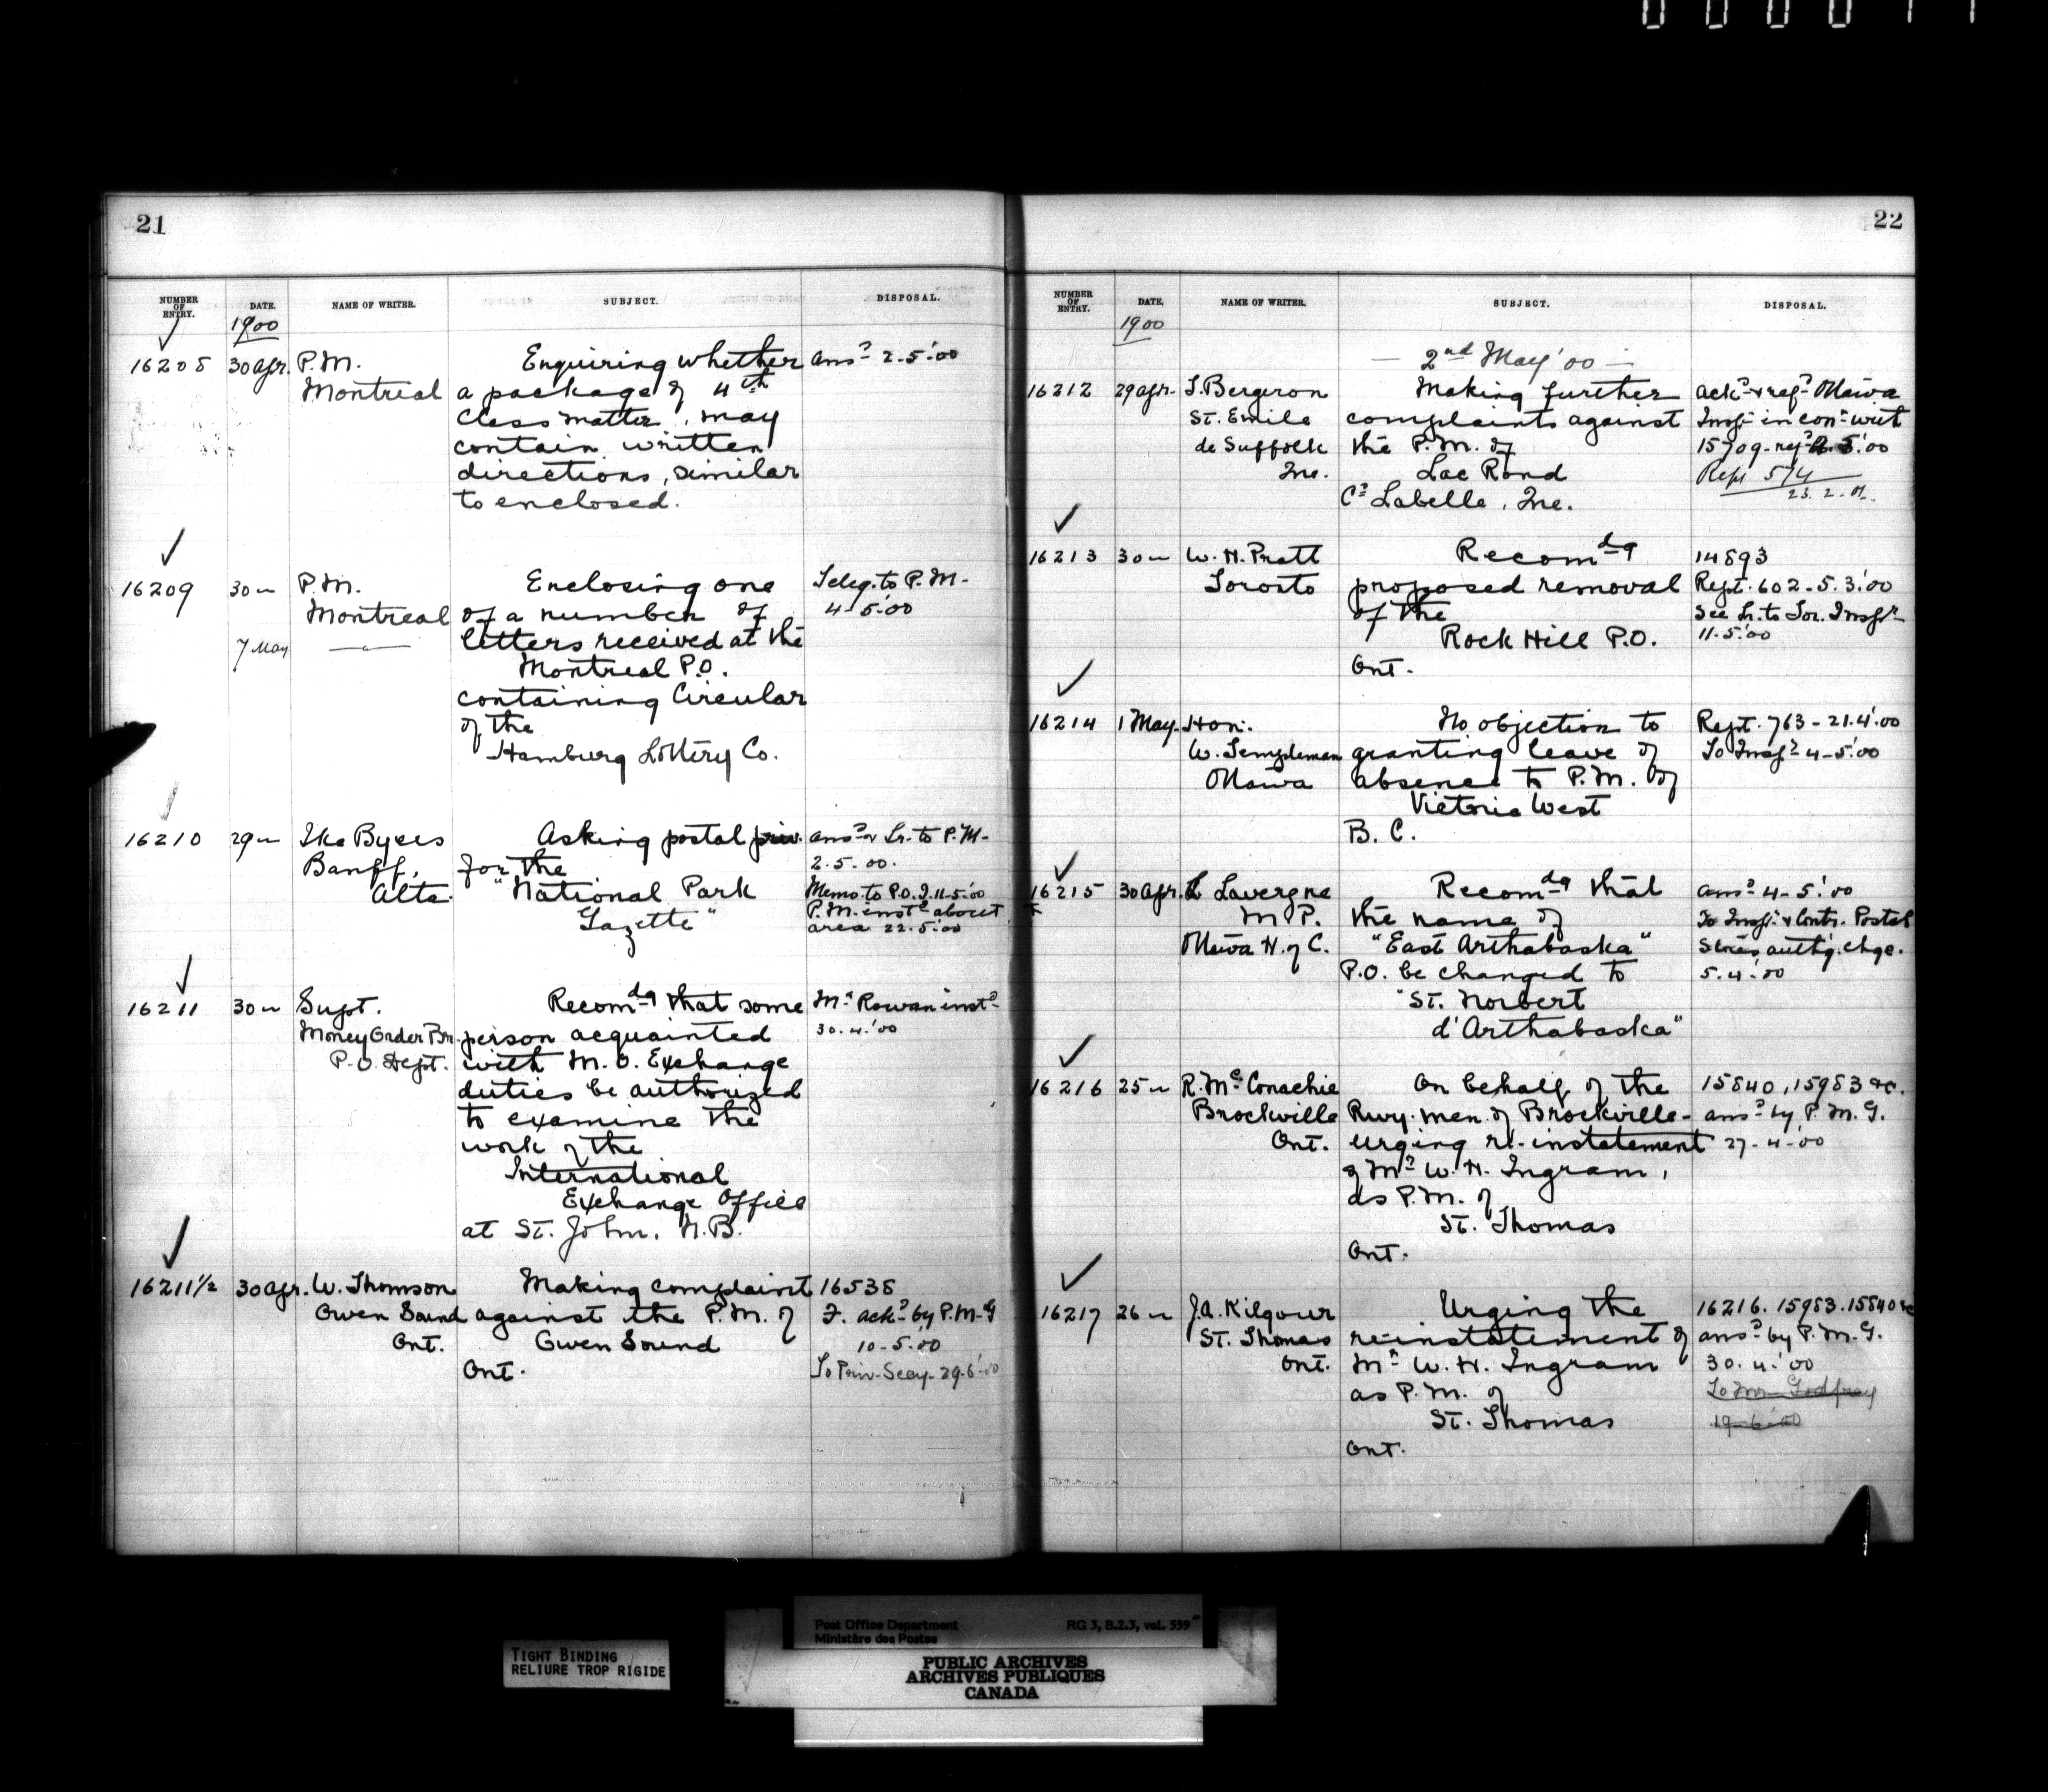 21
NUMBER OF ENTRY. DATE. NAME OF WRITER. SUBJECT. DISPOSAL.
1900
16208 30 Apr. P.M. Enquiring whether ansd 2-5-'00
Montreal a package of 4th
Class matter, may
contain written
directions, similar
to enclosed.
16209 30 " P.M. Enclosing one Teleg. to P.M-
Montreal of a number of 4-5-'00
7 May —"— letters received at the
Montreal P.O.
containing Circular
of the
Hamburg Lottery Co.
16210 29 " Ike Byers Asking postal priv. ansd & Lr. to P.M-
Banff, for the 2-5-00.
Alta. "National Park Memo. to P.O.I. 11-5-'00
Gazette" P.M. instd about
area 22-5-'00
16211 30 " Supt. Recomdg that some Mr Rowan instd
Money Order Br. person acquainted 30.4.'00
P.O. Dept. with M.O. Exchange
duties be authorized
to examine the
work of the
International
Exchange Office
at St. John, N.B.
16211½ 30 Apr. W. Thomson Making complaint 16538
Owen Sound against the P.M. of F. ackd by P.M.G
Ont. Owen Sound 10-5-'00
Ont. To Priv-Secy-29-6-'00
22
NUMBER OF ENTRY. DATE. NAME OF WRITER. SUBJECT. DISPOSAL.
1900
— 2nd May '00 —
16212 29 Apr. Bergeron Making further ackd & refd Ottawa
St. Emile complaints against Inspr in conn writ
de Suffolk the P.M. of 15709
Que. Lac Rond Rept 574
Co Labelle, Que. 23.2.01.
16213 30 " W.H. Pratt Recomdg 14893
Toronto proposed removal Rept. 602-5.3.'00
of the See Lr. to Tor. Inspr
Rock Hill P.O. 11.5.'00
Ont.
16214 1 May. Hon. No objection to Rept. 763-21.4.'00
W. Templeman granting leave of To Inspr 4-5-'00
Ottawa absence to P.M. of
Victoria West
B.C.
16215 30 Apr. L Lavergne Recomdg that ansd 4-5-'00
M.P. the name of To Inspr & Contr. Postal
Ottawa H. of C. "East Arthabaska" Stores authg. chge.
P.O. be changed to 5.4.'00
"St. Norbert
d'Arthabaska"
16216 25 " R. McConachie On behalf of the 15840, 15983 &c.
Brockville Rwy. men of Brockville- ansd by P.M.G.
Ont. urging re-instatement 27-4-'00
of Mr W.H. Ingram,
as P.M. of
St. Thomas
Ont.
16217 26 " J.A. Kilgour Urging the 16216. 15983. 15840 &c
St. Thomas re-instatement of ansd by P.M.G.
Ont. Mr W.H. Ingram 30.4.'00
as P.M. of To Mr Godfrey
St. Thomas 19-6-'00
Ont.
TIGHT BINDING
RELIURE TROP RIGIDE
Post Office Department RG 3, B.2.3, vol. 559
Ministère des Postes
PUBLIC ARCHIVES
ARCHIVES PUBLIQUES
CANADA